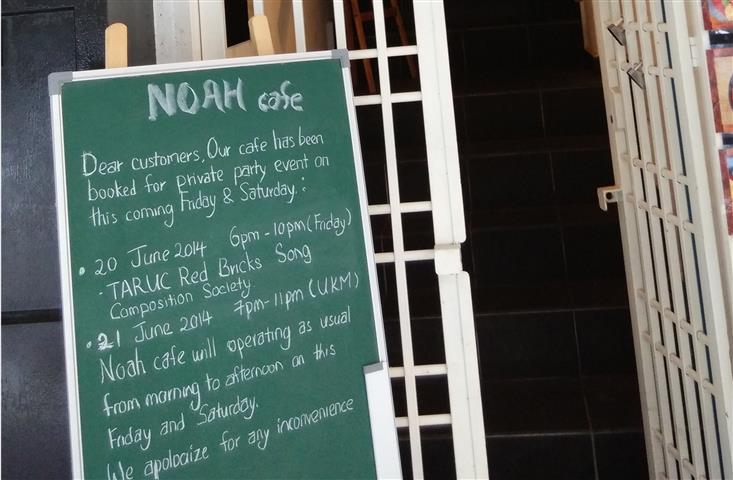 NOAH cafe
Dear customers, Our cafe has been
booked for private party event on
this coming Friday & Saturday :
• 20 June 2014 6pm - 10pm (Friday)
- TARUC Red Bricks Song
Composition Society
• 21 June 2014 7pm - 11pm (UKM)
Noah cafe will operating as usual
from morning to afternoon on this
Friday and Saturday.
We apologize for any inconvenience